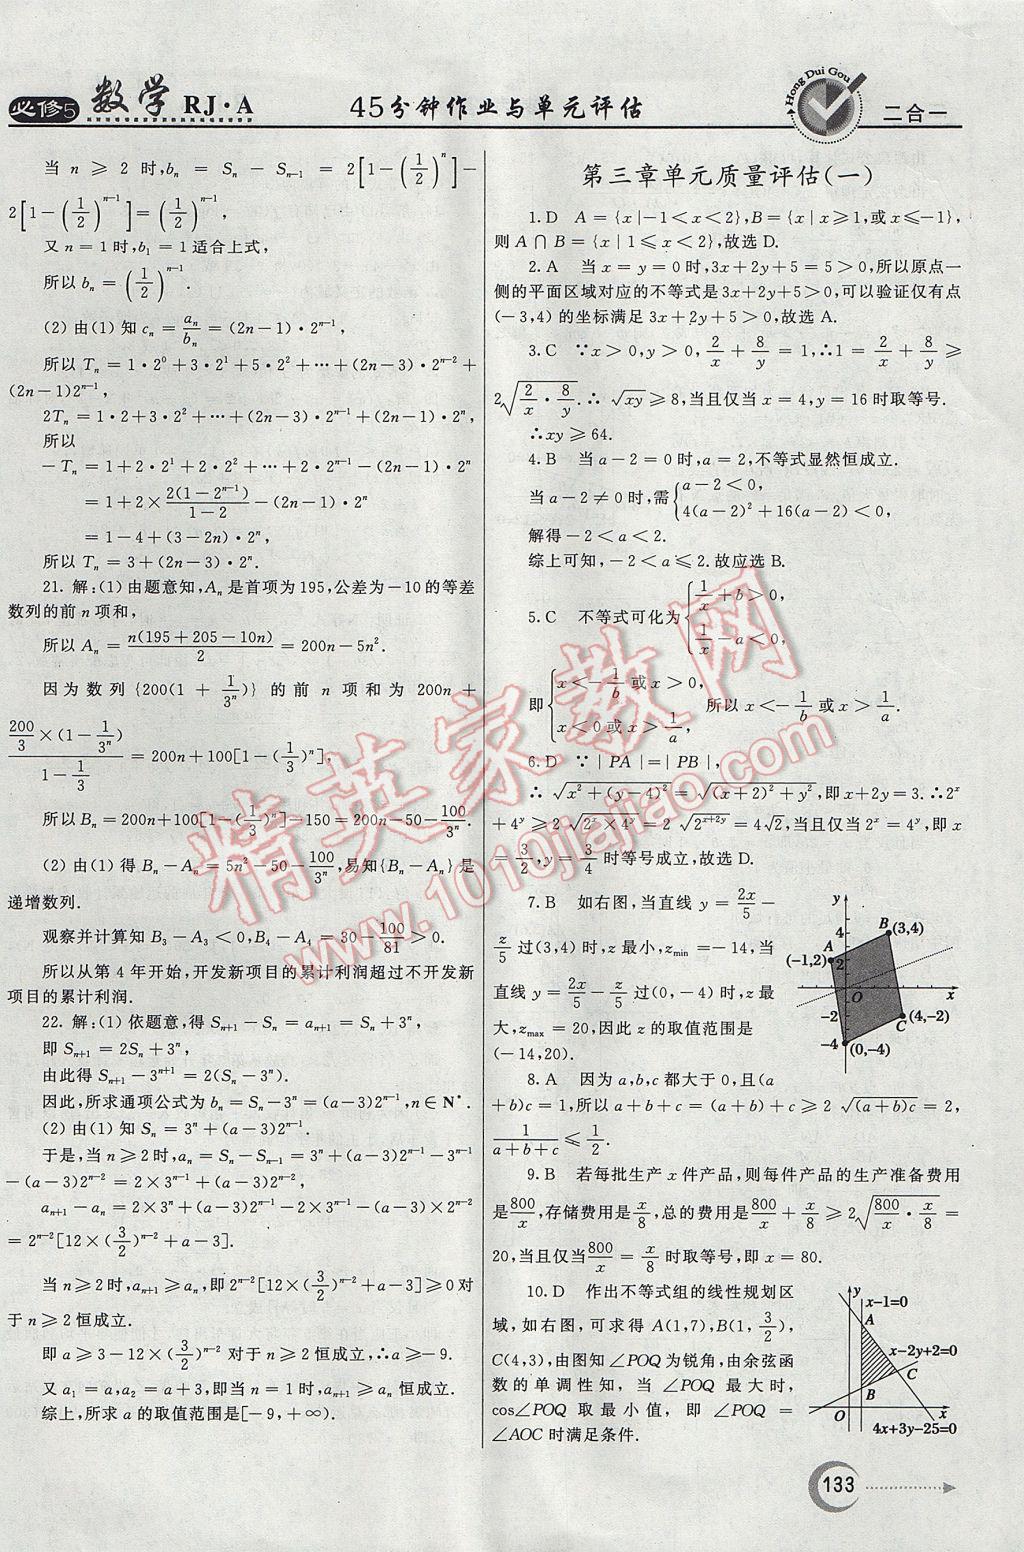 必修5 数学 RJ·A
45分钟作业与单元评估
Hong Dui Gou
二合一
当 n ≥ 2 时, bₙ = Sₙ − Sₙ₋₁ = 2[1−(1/2)ⁿ]−
2[1−(1/2)ⁿ⁻¹]=(1/2)ⁿ⁻¹,
又 n=1 时, b₁=1 适合上式,
所以 bₙ=(1/2)ⁿ⁻¹.
(2) 由(1)知 cₙ=aₙ/bₙ=(2n−1)·2ⁿ⁻¹,
所以 Tₙ=1·2⁰+3·2¹+5·2²+…+(2n−3)·2ⁿ⁻²+
(2n−1)2ⁿ⁻¹,
2Tₙ=1·2+3·2²+…+(2n−3)·2ⁿ⁻¹+(2n−1)·2ⁿ,
所以
−Tₙ=1+2·2¹+2·2²+…+2·2ⁿ⁻¹−(2n−1)·2ⁿ
=1+2×2(1−2ⁿ⁻¹)/(1−2)−(2n−1)·2ⁿ
=1−4+(3−2n)·2ⁿ,
所以 Tₙ=3+(2n−3)·2ⁿ.
21. 解:(1)由题意知,Aₙ 是首项为195,公差为−10的等差
数列的前 n 项和,
所以 Aₙ=n(195+205−10n)/2=200n−5n².
因为数列{200(1+1/3ⁿ)}的前 n 项和为 200n+
(200/3×(1−1/3ⁿ))/(1−1/3)=200n+100[1−(1/3)ⁿ],
所以 Bₙ=200n+100[1−(1/3)ⁿ]−150=200n−50−100/3ⁿ.
(2)由(1)得 Bₙ−Aₙ=5n²−50−100/3ⁿ,易知{Bₙ−Aₙ}是
递增数列.
观察并计算知 B₃−A₃<0,B₄−A₄=30−100/81>0.
所以从第4年开始,开发新项目的累计利润超过不开发新
项目的累计利润.
22. 解:(1)依题意,得 Sₙ₊₁−Sₙ=aₙ₊₁=Sₙ+3ⁿ,
即 Sₙ₊₁=2Sₙ+3ⁿ,
由此得 Sₙ₊₁−3ⁿ⁺¹=2(Sₙ−3ⁿ).
因此,所求通项公式为 bₙ=Sₙ−3ⁿ=(a−3)2ⁿ⁻¹,n∈N*.
(2)由(1)知 Sₙ=3ⁿ+(a−3)2ⁿ⁻¹.
于是,当 n≥2 时,aₙ=Sₙ−Sₙ₋₁=3ⁿ+(a−3)2ⁿ⁻¹−3ⁿ⁻¹
−(a−3)2ⁿ⁻²=2×3ⁿ⁻¹+(a−3)2ⁿ⁻²,
aₙ₊₁−aₙ=2×3ⁿ+(a−3)2ⁿ⁻¹−2×3ⁿ⁻¹−(a−3)×2ⁿ⁻²
=2ⁿ⁻²[12×(3/2)ⁿ⁻²+a−3].
当 n≥2 时,aₙ₊₁≥aₙ,即 2ⁿ⁻²[12×(3/2)ⁿ⁻²+a−3]≥0对
于 n≥2 恒成立.
即 a≥3−12×(3/2)ⁿ⁻² 对于 n≥2 恒成立,∴a≥−9.
又 a₁=a,a₂=a+3,即当 n=1 时,aₙ₊₁≥aₙ 恒成立.
综上,所求 a 的取值范围是[−9,+∞).
第三章单元质量评估(一)
1.D A={x|−1<x<2},B={x|x≥1,或x≤−1},
则 A∩B={x|1≤x<2},故选 D.
2.A 当 x=y=0时,3x+2y+5=5>0,所以原点一
侧的平面区域对应的不等式是3x+2y+5>0,可以验证仅有点
(−3,4)的坐标满足 3x+2y+5>0,故选 A.
3.C ∵x>0,y>0,2/x+8/y=1,∴1=2/x+8/y≥
2√(2/x·8/y).∴√xy≥8,当且仅当 x=4,y=16 时取等号.
∴xy≥64.
4.B 当 a−2=0时,a=2,不等式显然恒成立.
当 a−2≠0时,需{a−2<0, 4(a−2)²+16(a−2)<0,
解得−2<a<2.
综上可知,−2<a≤2.故应选 B.
5.C 不等式可化为{1/x+b>0, 1/x−a<0,
即{x<−1/b 或 x>0, x<0或 x>1/a, 所以 x<−1/b 或 x>1/a.
6.D ∵|PA|=|PB|,
∴√(x²+(y−4)²)=√((x+2)²+y²),即x+2y=3.∴2ˣ
+4ʸ≥2√(2ˣ×4ʸ)=2√(2ˣ⁺²ʸ)=4√2,当且仅当 2ˣ=4ʸ,即 x
=3/2,y=3/4时等号成立,故选 D.
7.B 如右图,当直线 y=2x/5−
z/5过(3,4)时,z 最小,z_min=−14,当
直线 y=2x/5−z/5过(0,−4)时,z 最
大,z_max=20,因此 z 的取值范围是
(−14,20).
y
4
B
(3,4)
A
(−1,2)
2
O
x
−2
C
(4,−2)
−4
(0,−4)
8.A 因为 a,b,c 都大于0,且(a
+b)c=1,所以 a+b+c=(a+b)+c≥2√((a+b)c)=2,
1/(a+b+c)≤1/2.
9.B 若每批生产 x 件产品,则每件产品的生产准备费用
是800/x,存储费用是x/8,总的费用是800/x+x/8≥2√(800/x·x/8)=
20,当且仅当800/x=x/8时取等号,即 x=80.
10.D 作出不等式组的线性规划区
域,如右图,可求得 A(1,7),B(1,3/2),
C(4,3),由图知∠POQ为锐角,由余弦函
数的单调性知,当∠POQ最大时,
cos∠POQ取最小值,即∠POQ=
∠AOC时满足条件.
y
x−1=0
A
x−2y+2=0
C
B
O
x
4x+3y−25=0
精英家教网
www.1010jiajiao.com
133